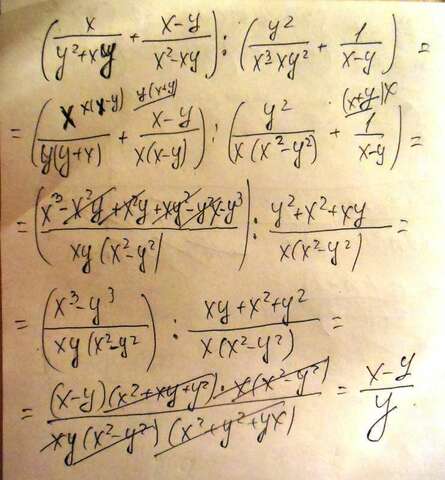 (x/(y²+xy) + (x-y)/(x²-xy)) : (y²/(x³xy²) + 1/(x-y)) =
= (x x(x-y)/(y(y+x)) + y(x+y) (x-y)/(x(x-y))) : (y²/(x(x²-y²)) + (x+y)x 1/(x-y)) =
= ((x³-x²y+x²y+xy²-y²x-y³)/(xy(x²-y²)) : (y²+x²+xy)/(x(x²-y²)) =
= ((x³-y³)/(xy(x²-y²)) : (xy+x²+y²)/(x(x²-y²)) =
= (x-y)(x²+xy+y²)·x(x²-y²)/(xy(x²-y²)(x²+y²+yx)) = (x-y)/y